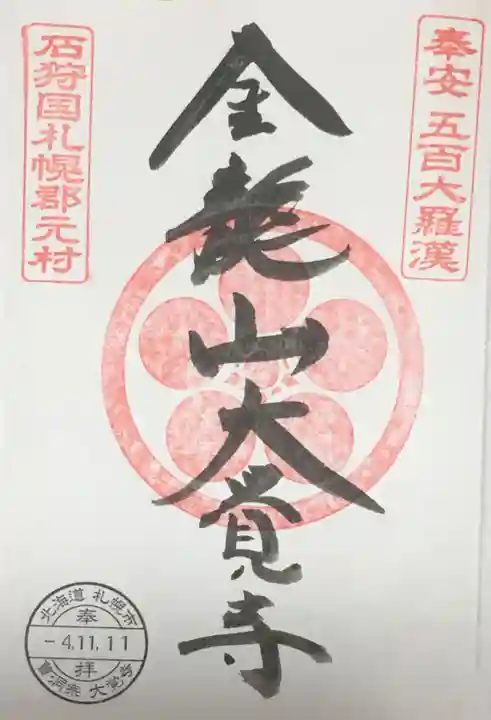 奉安 五百大羅漢
金龍山大覚寺
石狩国札幌郡元村
北海道 札幌市
奉
-4.11.11
拝
曹洞宗 大覚寺